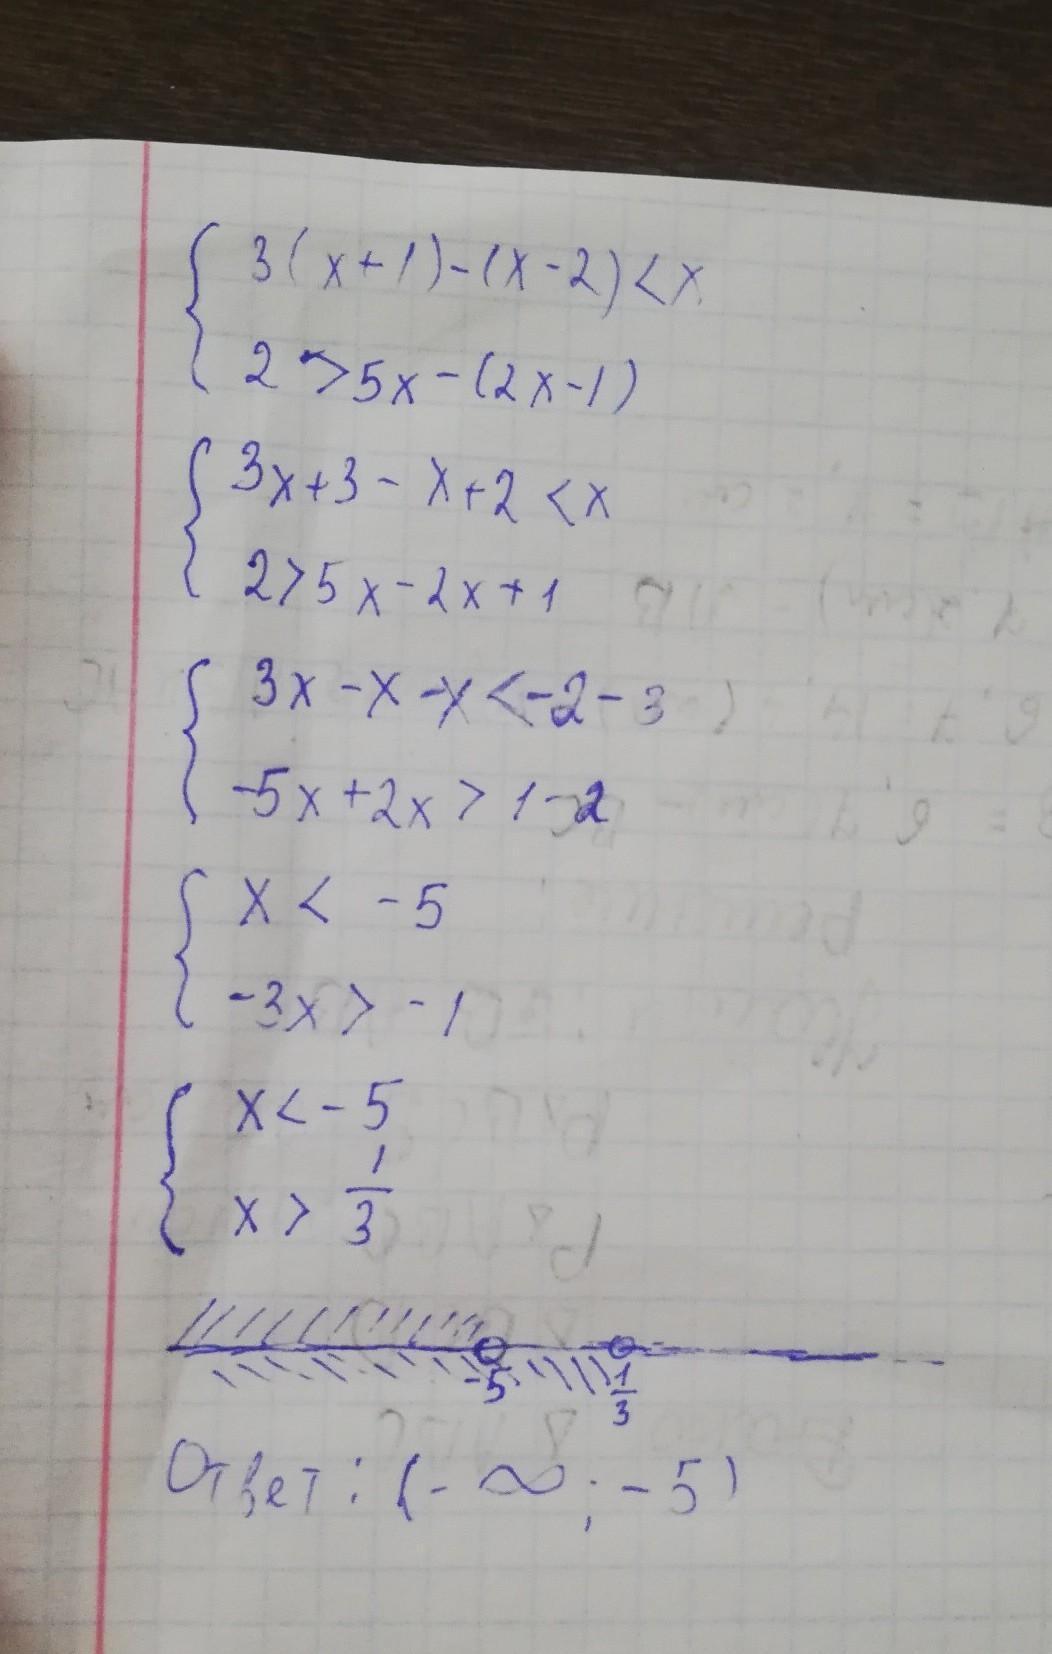 3(x+1)-(x-2)<x
2>5x-(2x-1)
3x+3-x+2<x
2>5x-2x+1
3x-x-x<-2-3
-5x+2x>1-2
x<-5
-3x>-1
x<-5
x>1/3
-5 1/3
Ответ: (-∞;-5)